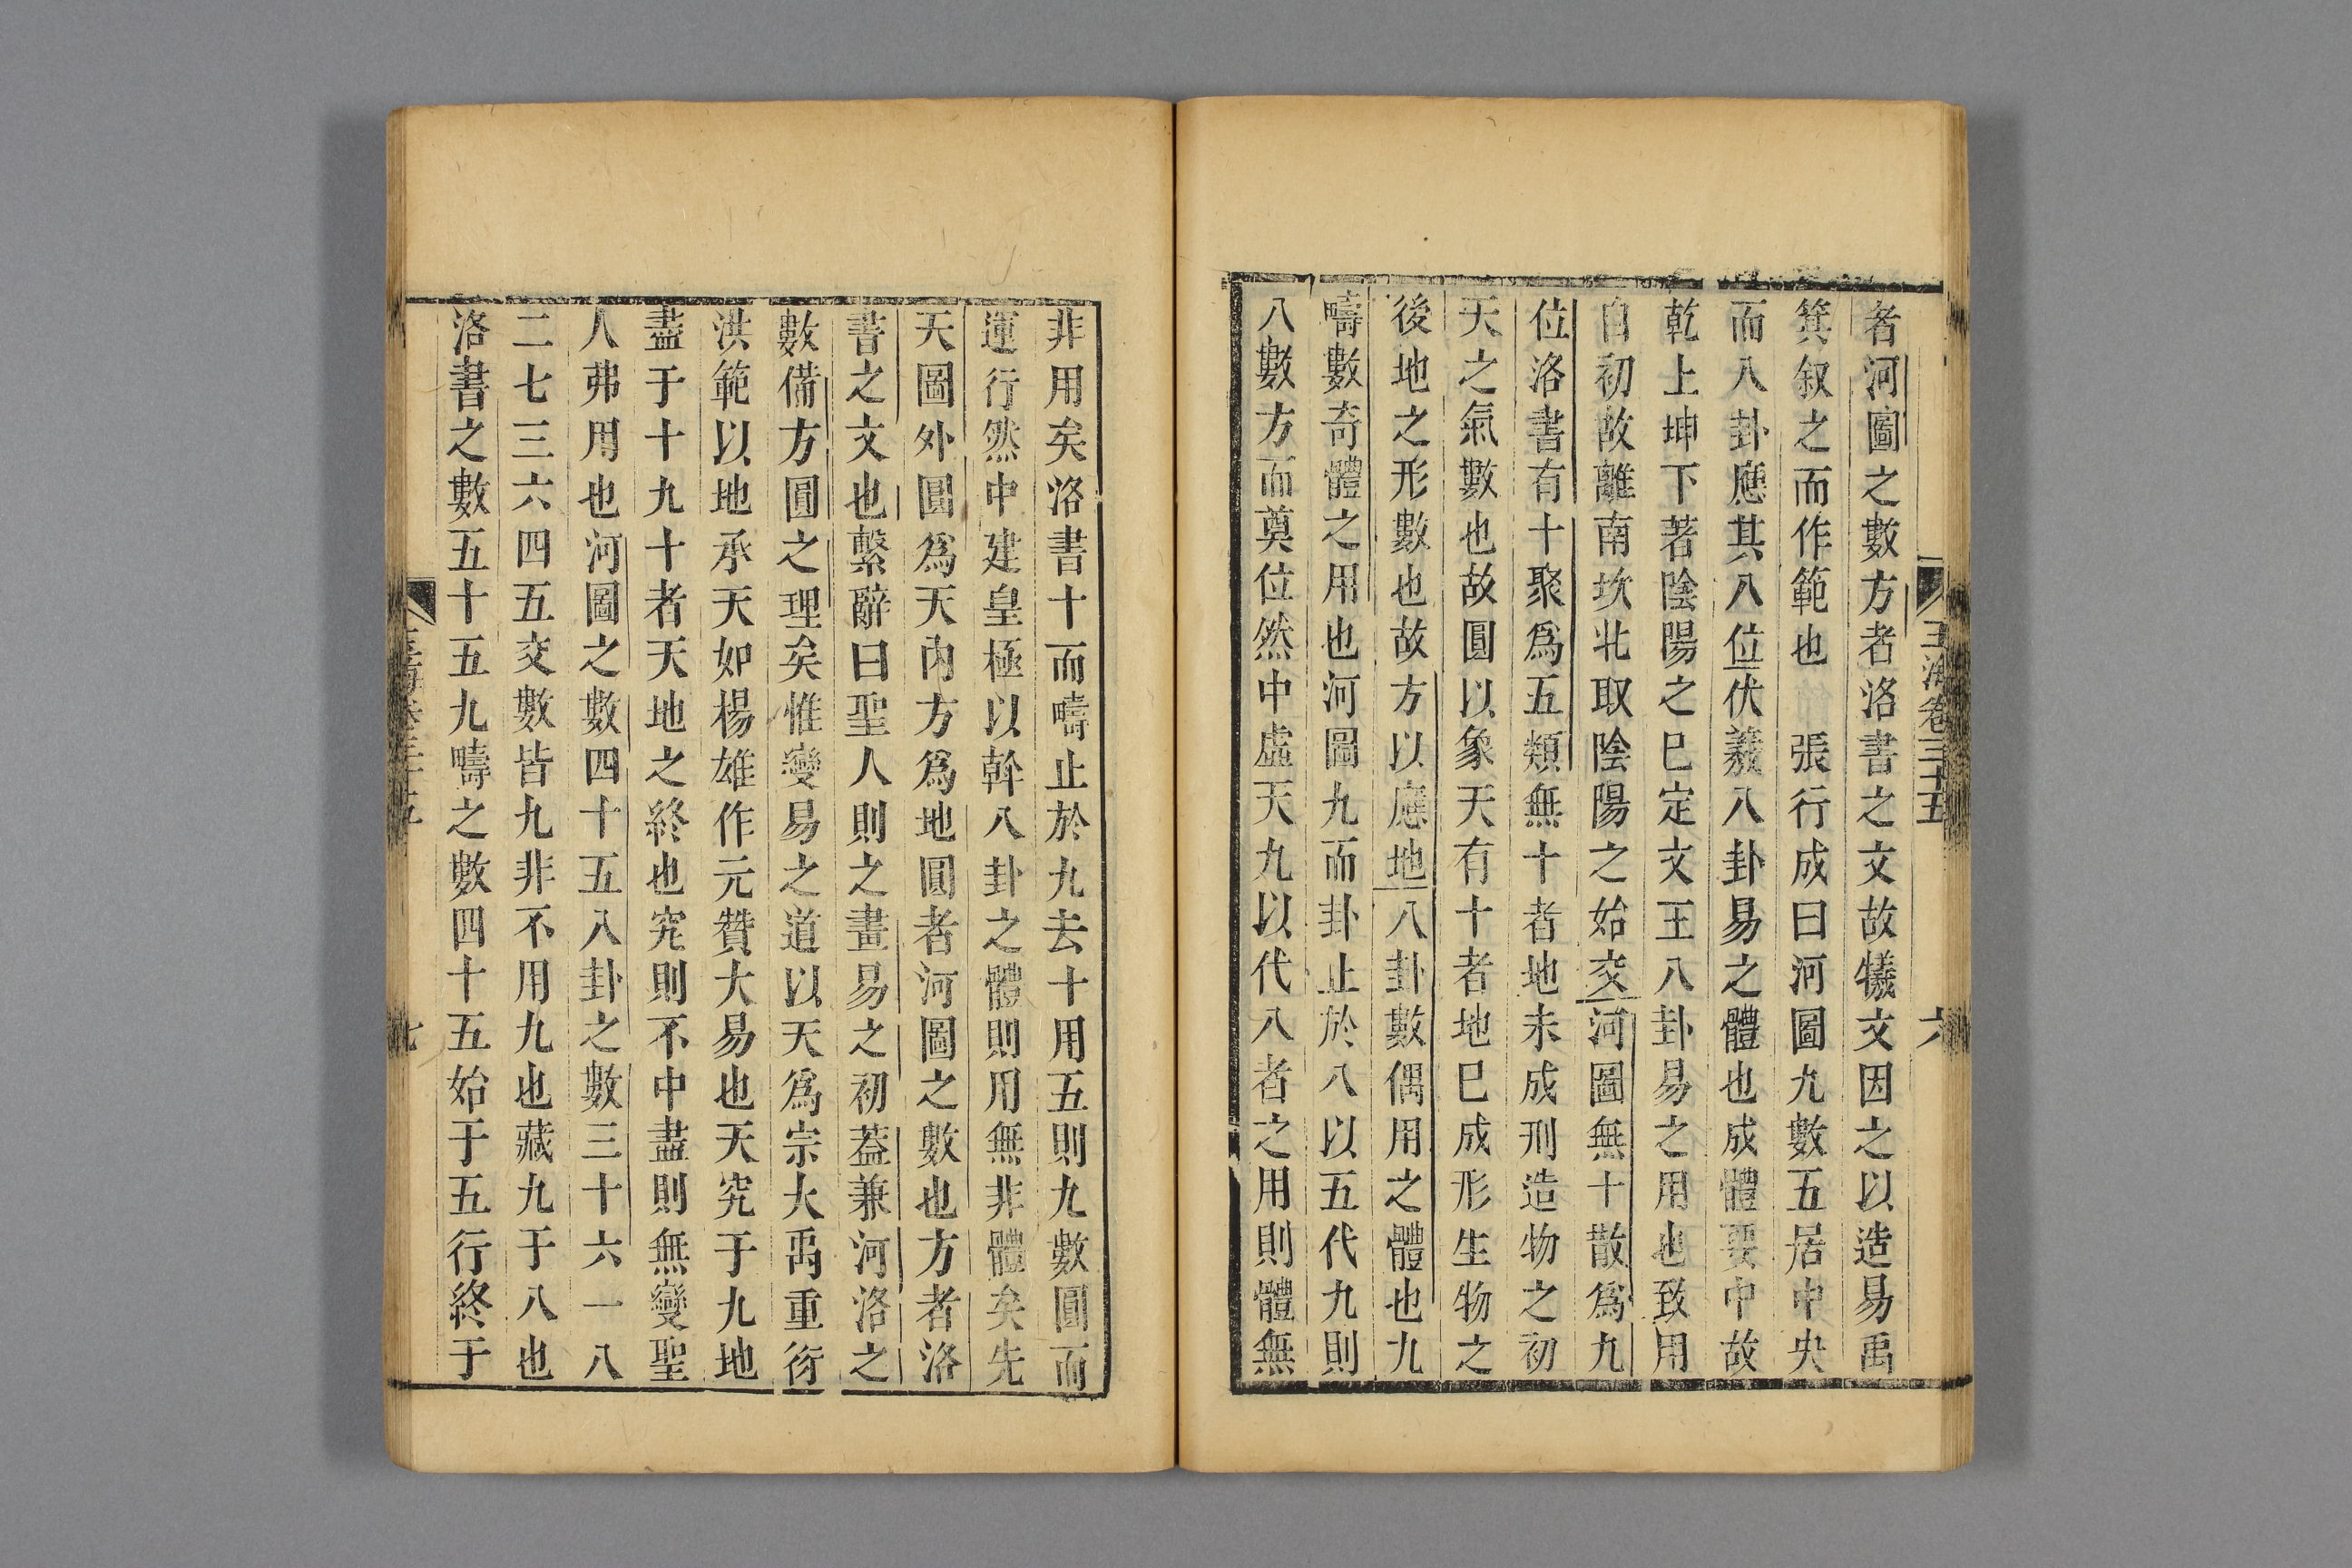 玉海卷三十五
六
者河圖之數方者洛書之文故犧文因之以造易禹
箕叙之而作範也 張行成曰河圖九數五居中央
而八卦應其八位伏羲八卦易之體也成體要中故
乾上坤下著陰陽之巳定文王八卦易之用也致用
自初故離南坎北取陰陽之始交河圖無十散爲九
位洛書有十聚爲五類無十者地未成刑造物之初
天之氣數也故圓以象天有十者地巳成形生物之
後地之形數也故方以應地八卦數偶用之體也九
疇數奇體之用也河圖九而卦止於八以五代九則
八數方而奠位然中虛天九以代八者之用則體無
非用矣洛書十而疇止於九去十用五則九數圓而
運行然中建皇極以幹八卦之體則用無非體矣先
天圖外圓爲天內方爲地圓者河圖之數也方者洛
書之文也繫辭曰聖人則之畫易之初葢兼河洛之
數備方圓之理矣惟變易之道以天爲宗大禹重衍
洪範以地承天如楊雄作元贊大易也天究于九地
盡于十九十者天地之終也究則不中盡則無變聖
人弗用也河圖之數四十五八卦之數三十六一八
二七三六四五交數皆九非不用九也藏九于八也
洛書之數五十五九疇之數四十五始于五行終于
七